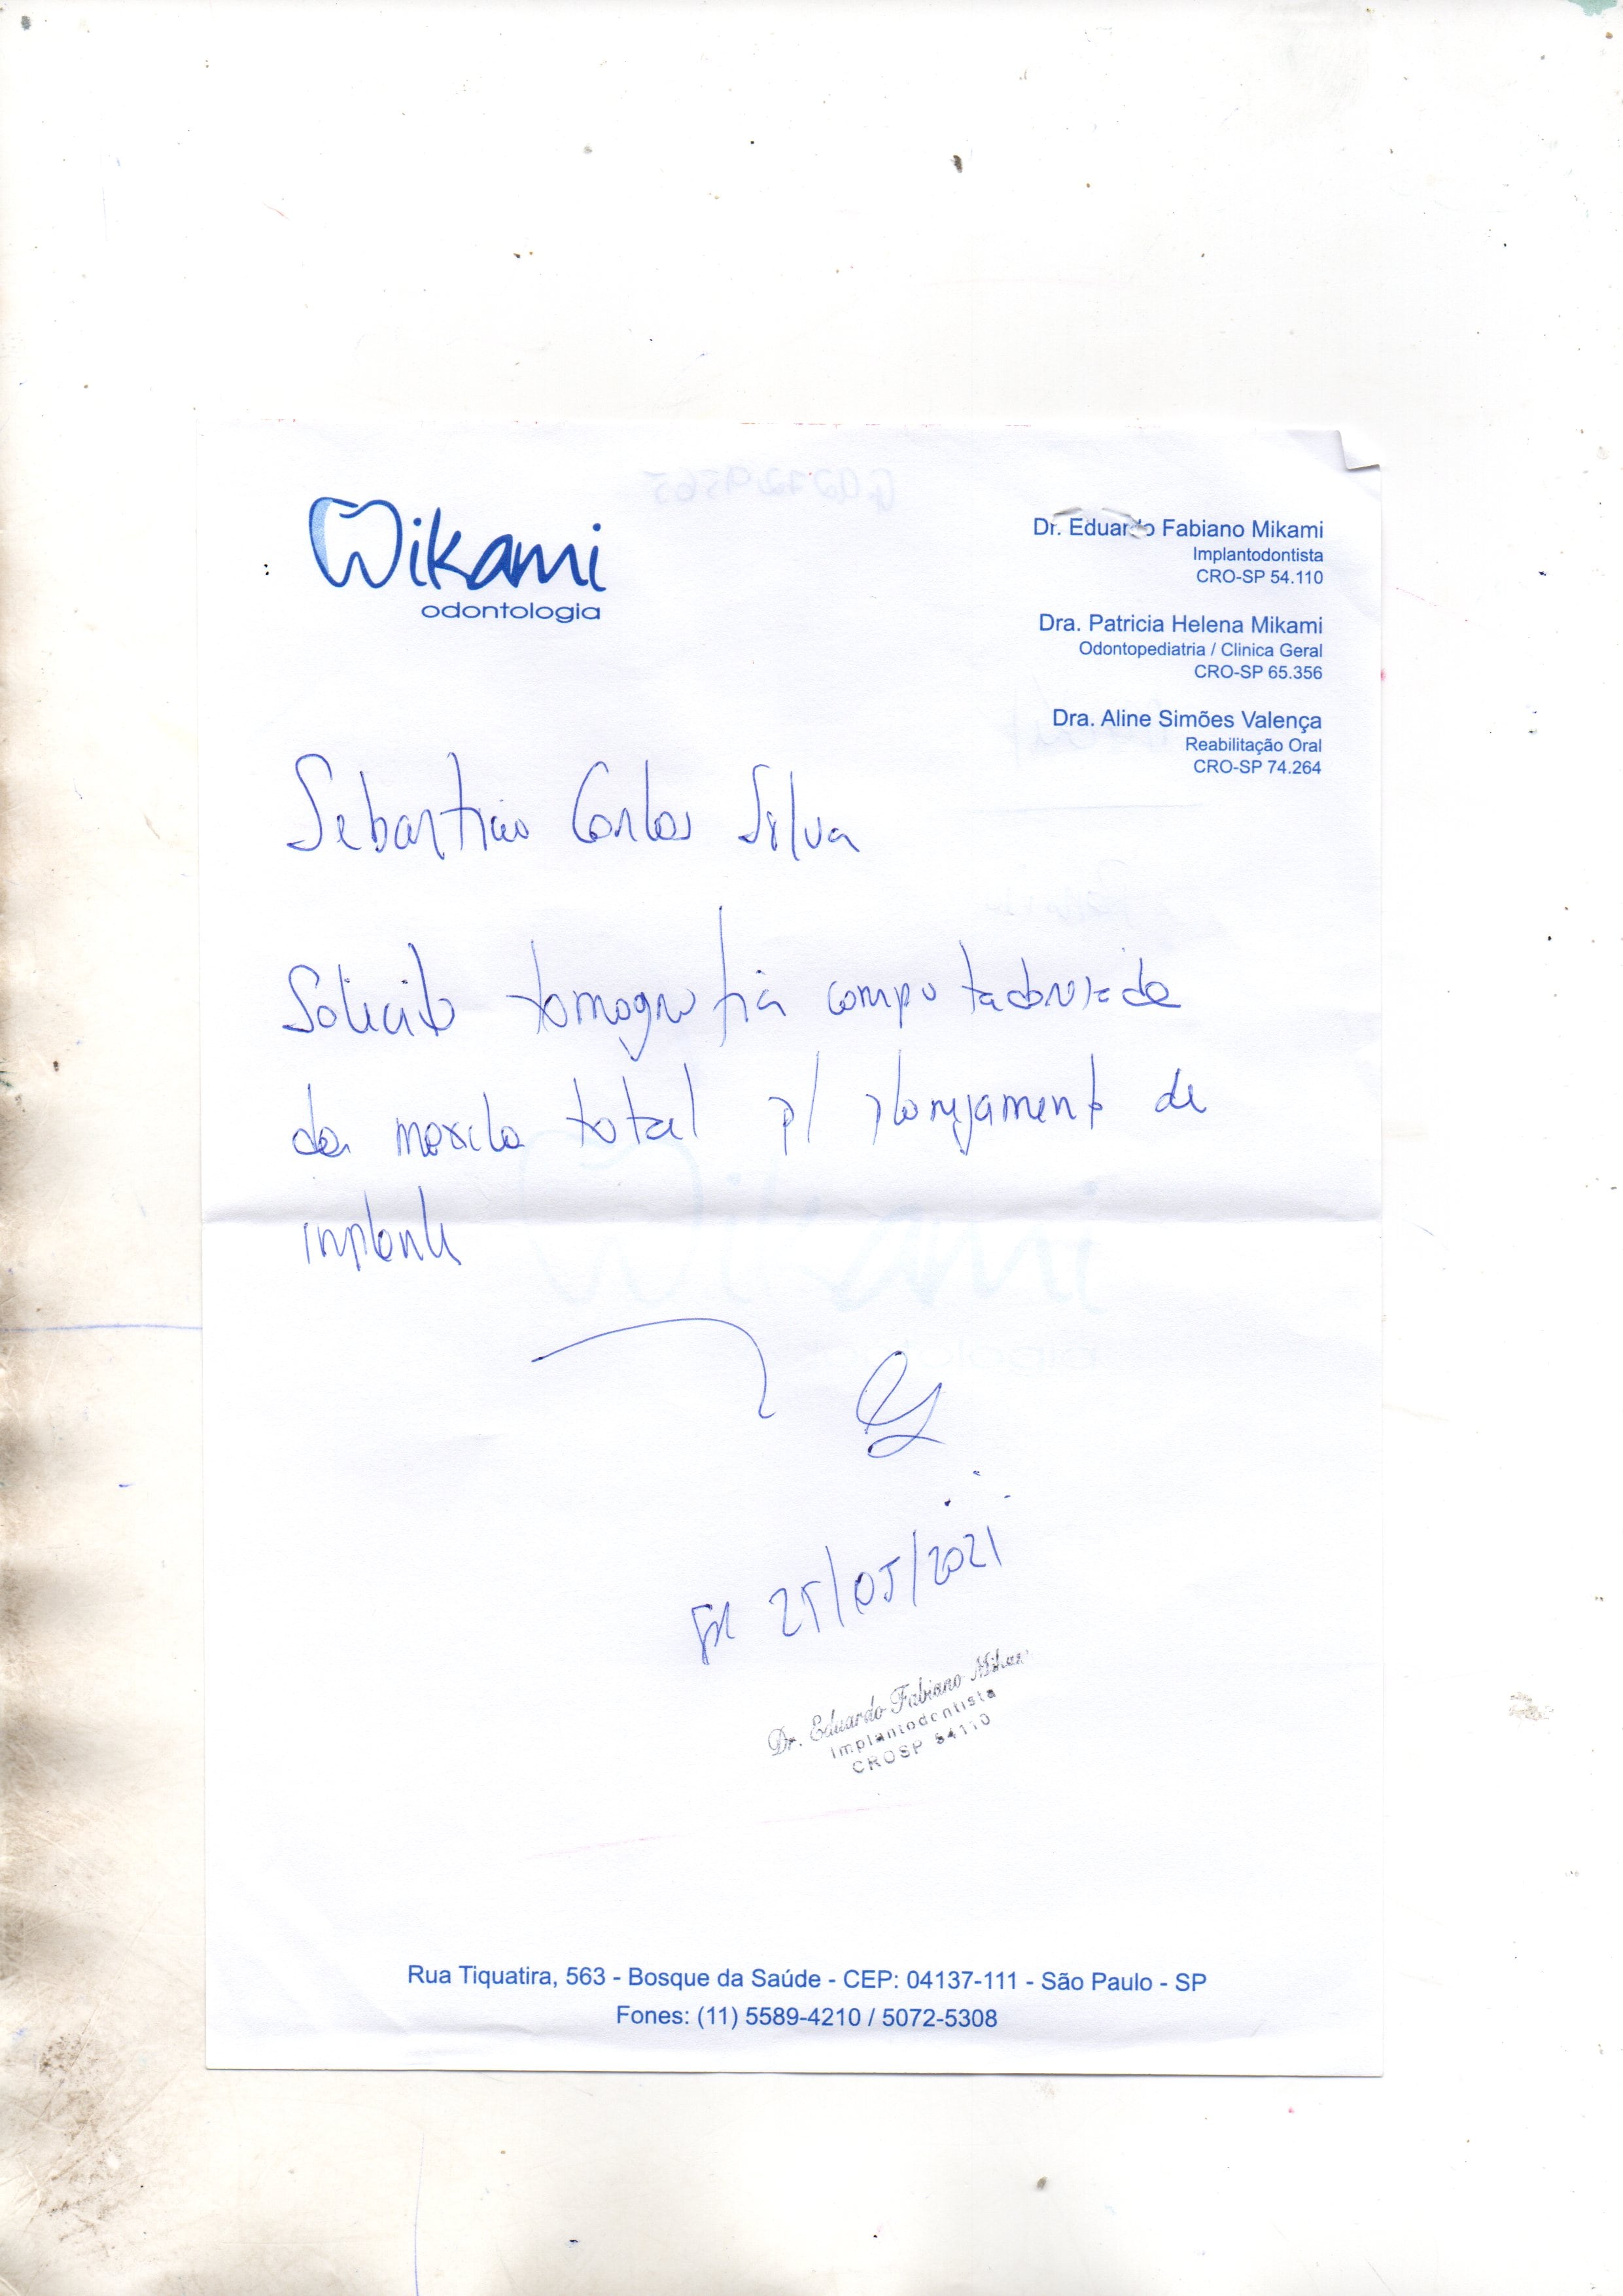 Mikami
odontologia
Dr. Eduardo Fabiano Mikami
Implantodontista
CRO-SP 54.110
Dra. Patricia Helena Mikami
Odontopediatria / Clinica Geral
CRO-SP 65.356
Dra. Aline Simões Valença
Reabilitação Oral
CRO-SP 74.264
Sebastião Carlos Silva
Solicito tomografia computadorizada
da maxila total p/ planejamento de
implante
25/05/2021
Dr. Eduardo Fabiano Mikami
Implantodontista
CROSP 54110
Rua Tiquatira, 563 - Bosque da Saúde - CEP: 04137-111 - São Paulo - SP
Fones: (11) 5589-4210 / 5072-5308